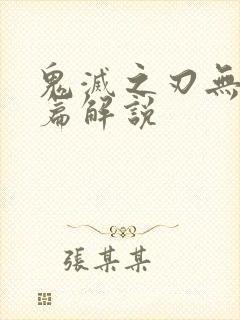 鬼滅之刃無
篇解說
張某某